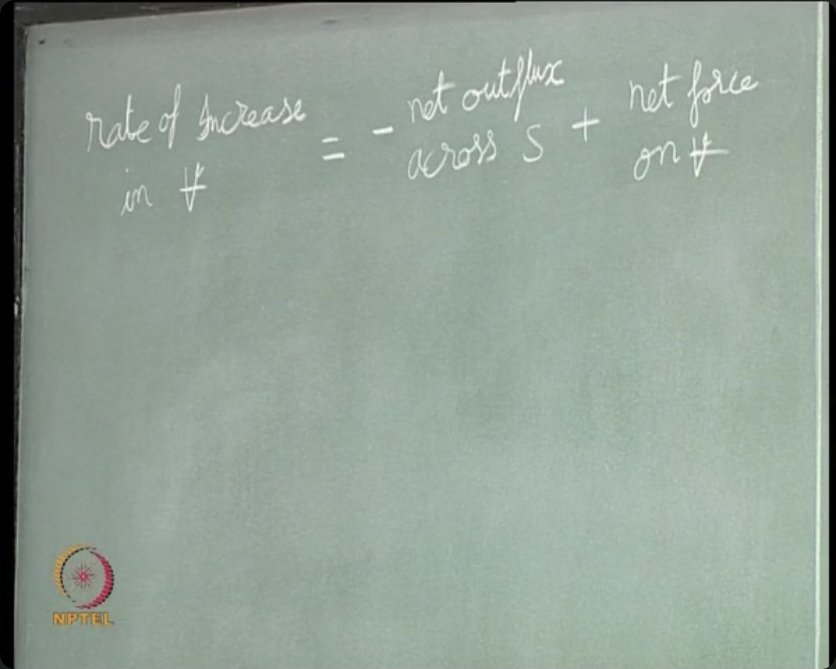 rate of increase
in V̶
= - net outflux
across S
+ net force
on V̶
NPTEL